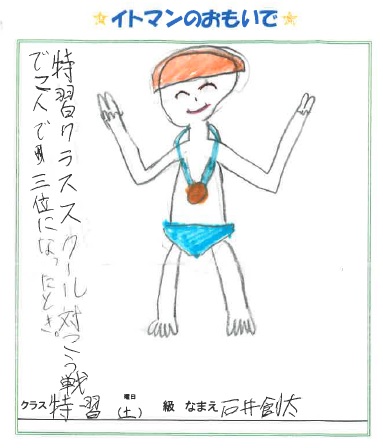 ☆イトマンのおもいで☆
特習クラススクール対こう戦
で二人で三位になったとき。
クラス 特習 曜日 (土) 級 なまえ 石井創太